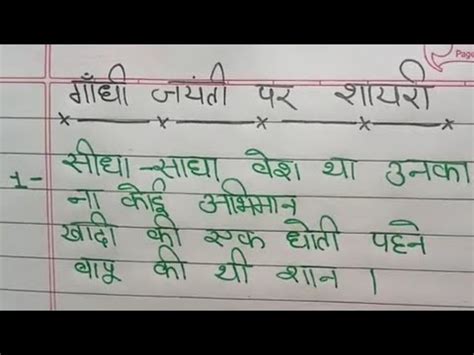 Page
गाँधी जयंती पर शायरी
1- सीधा-साधा वेश था उनका
ना कोई अभिमान
खादी की एक धोती पहने
बापू की थी शान ।